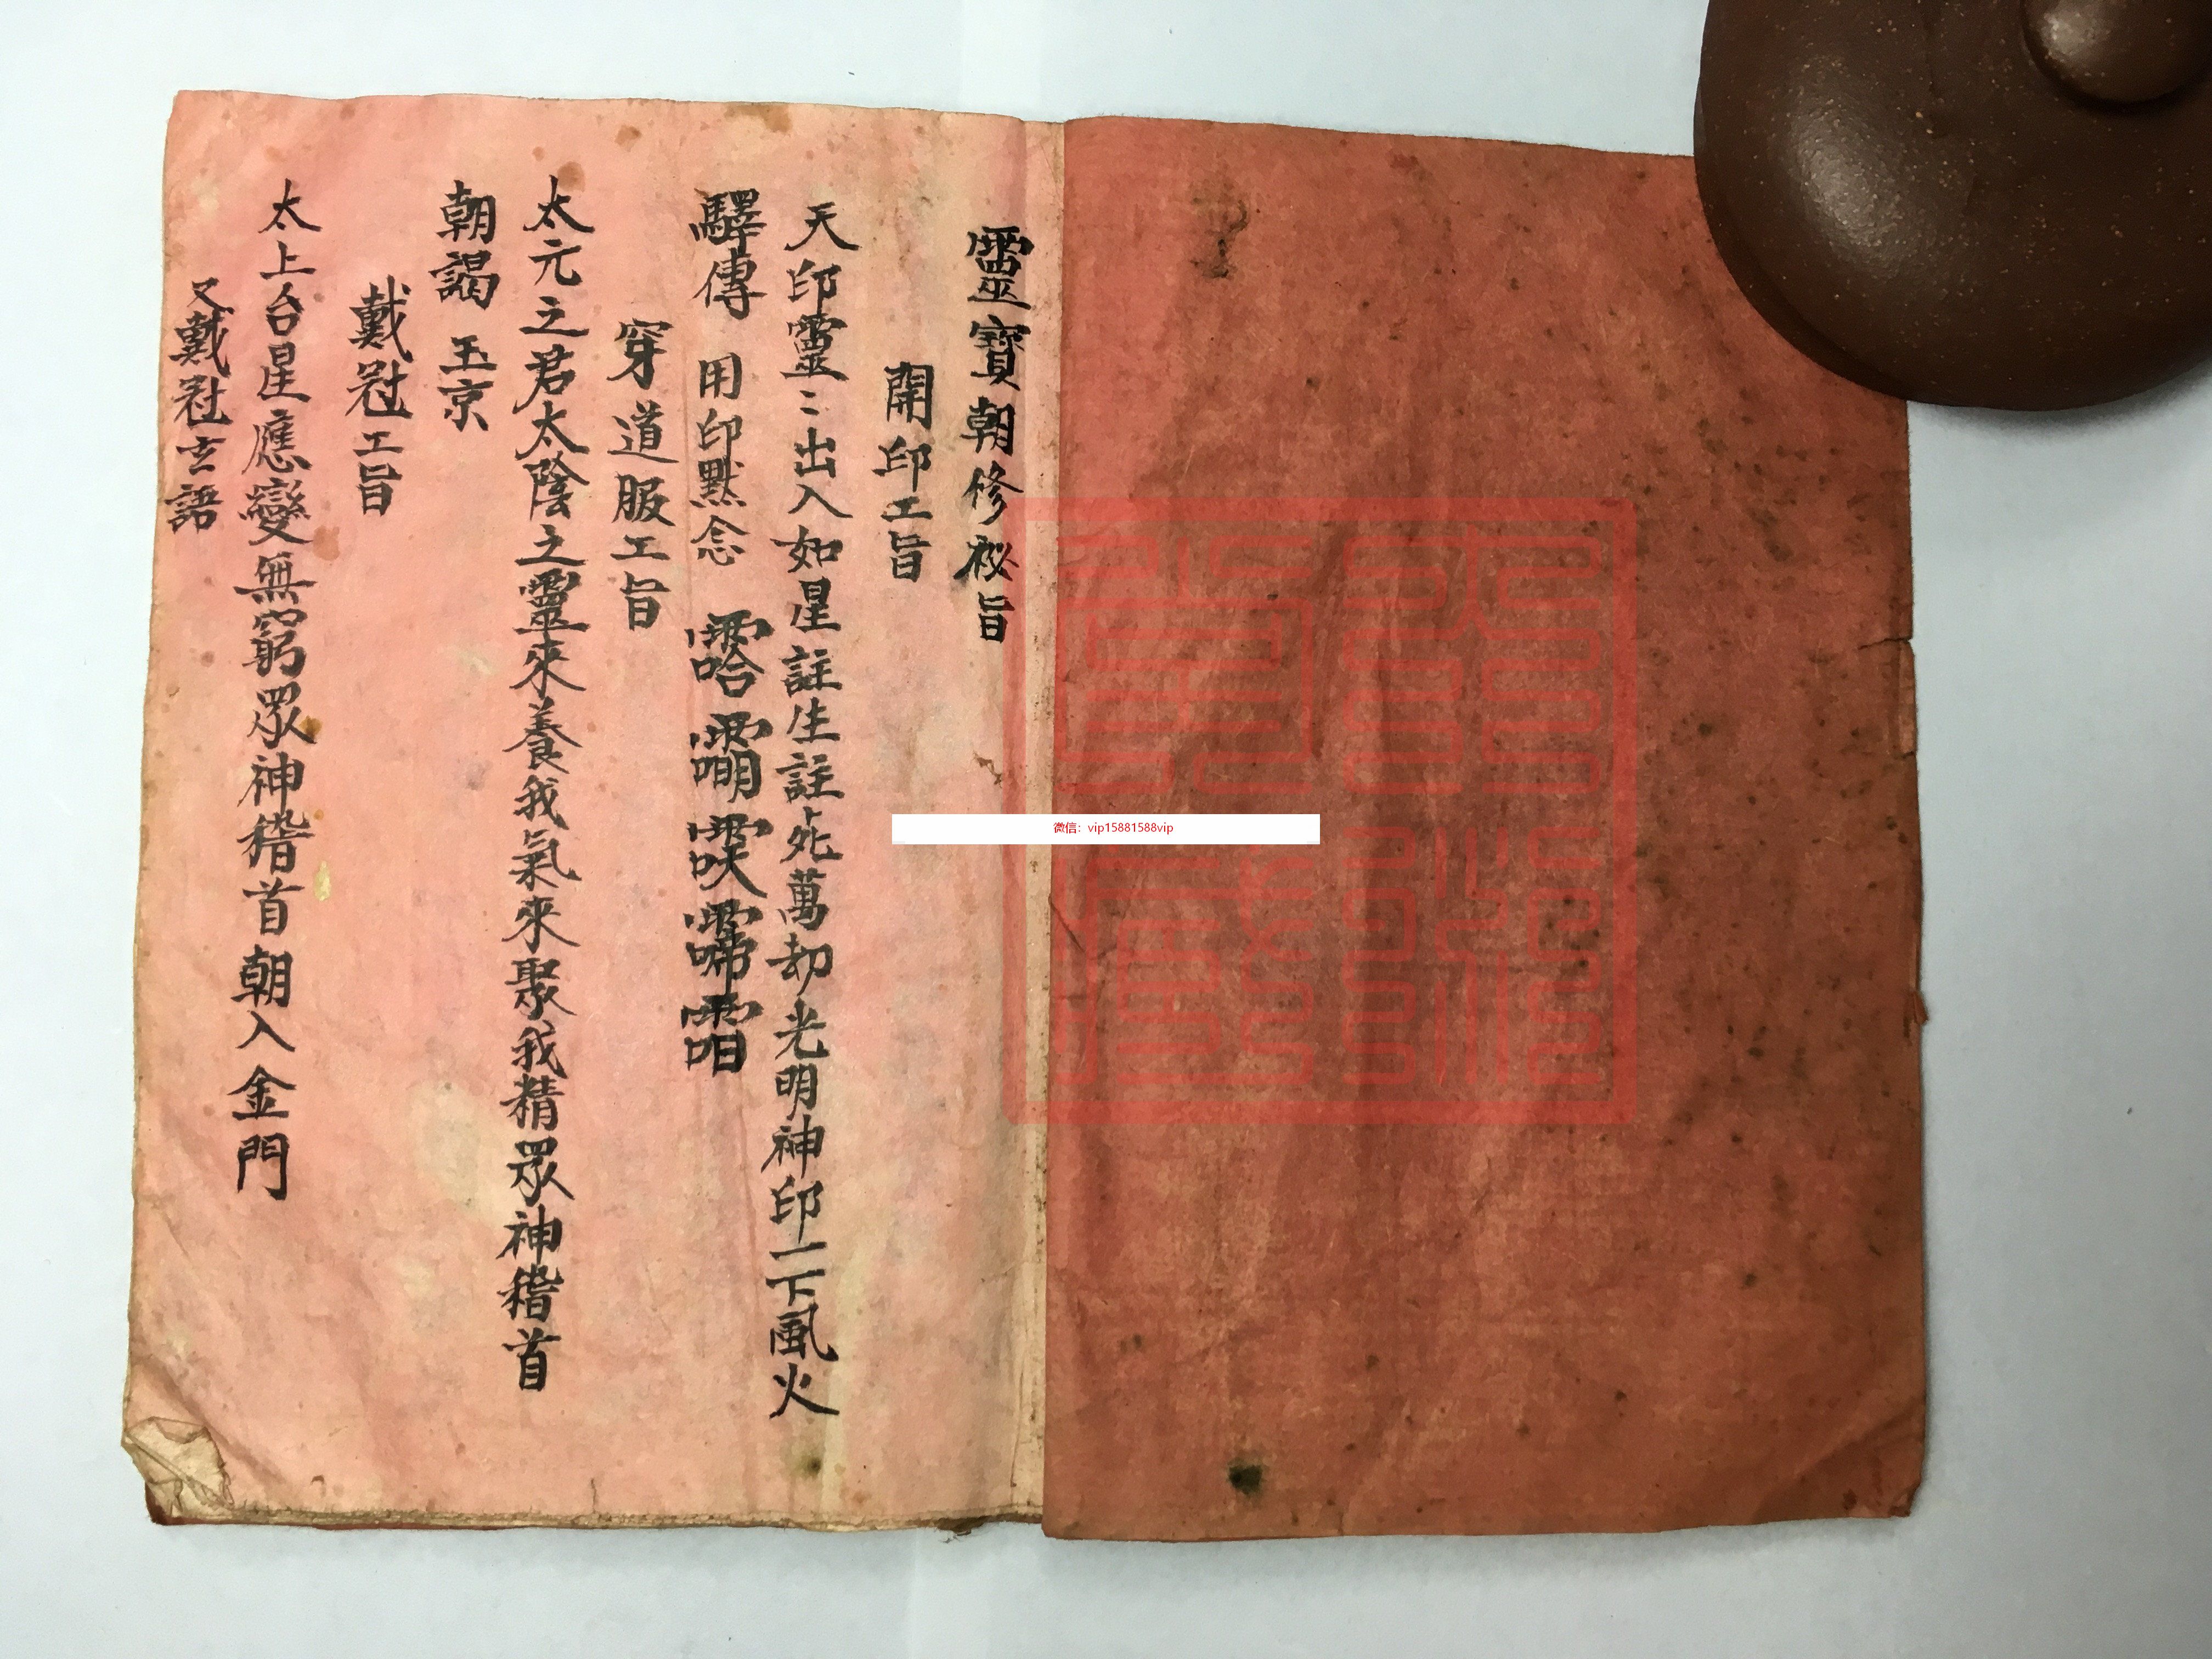 靈寶朝修祕旨
開印工旨
天印靈〻出入如星註生註死萬劫光明神印一下風火
驛傳 用印默念
穿道服工旨
太元之君太陰之靈來養我氣來聚我精眾神稽首
朝謁玉京
戴冠工旨
太上台星應變無窮眾神稽首朝入金門
又戴冠玄語
微信：vip15881588vip